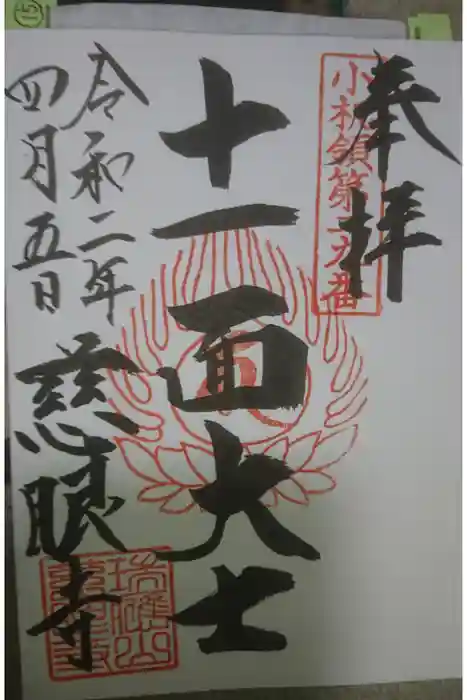 奉拝
小机領第二九番
十一面大士
令和二年
四月五日
慈眼寺